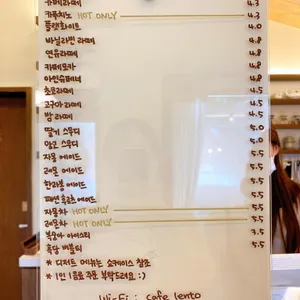 카페라떼 4.3
카푸치노 HOT ONLY 4.3
플랫화이트 4.0
바닐라빈 라떼 4.8
연유라떼 4.8
카페모카 4.8
아인슈페너 4.8
초코라떼 4.5
고구마 라떼 4.5
밤 라떼 4.5
딸기 스무디 5.0
망고 스무디 5.0
자몽 에이드 5.5
레몬 에이드 5.5
한라봉 에이드 5.5
패션후르츠 에이드 5.5
자몽차 HOT ONLY 5.5
레몬차 HOT ONLY 5.5
복숭아 아이스티 3.5
흑당 버블티 5.5
* 디저트 메뉴는 쇼케이스 참조
* 1인 1음료 주문 부탁드려요 :)
Wi-Fi : cafe lento